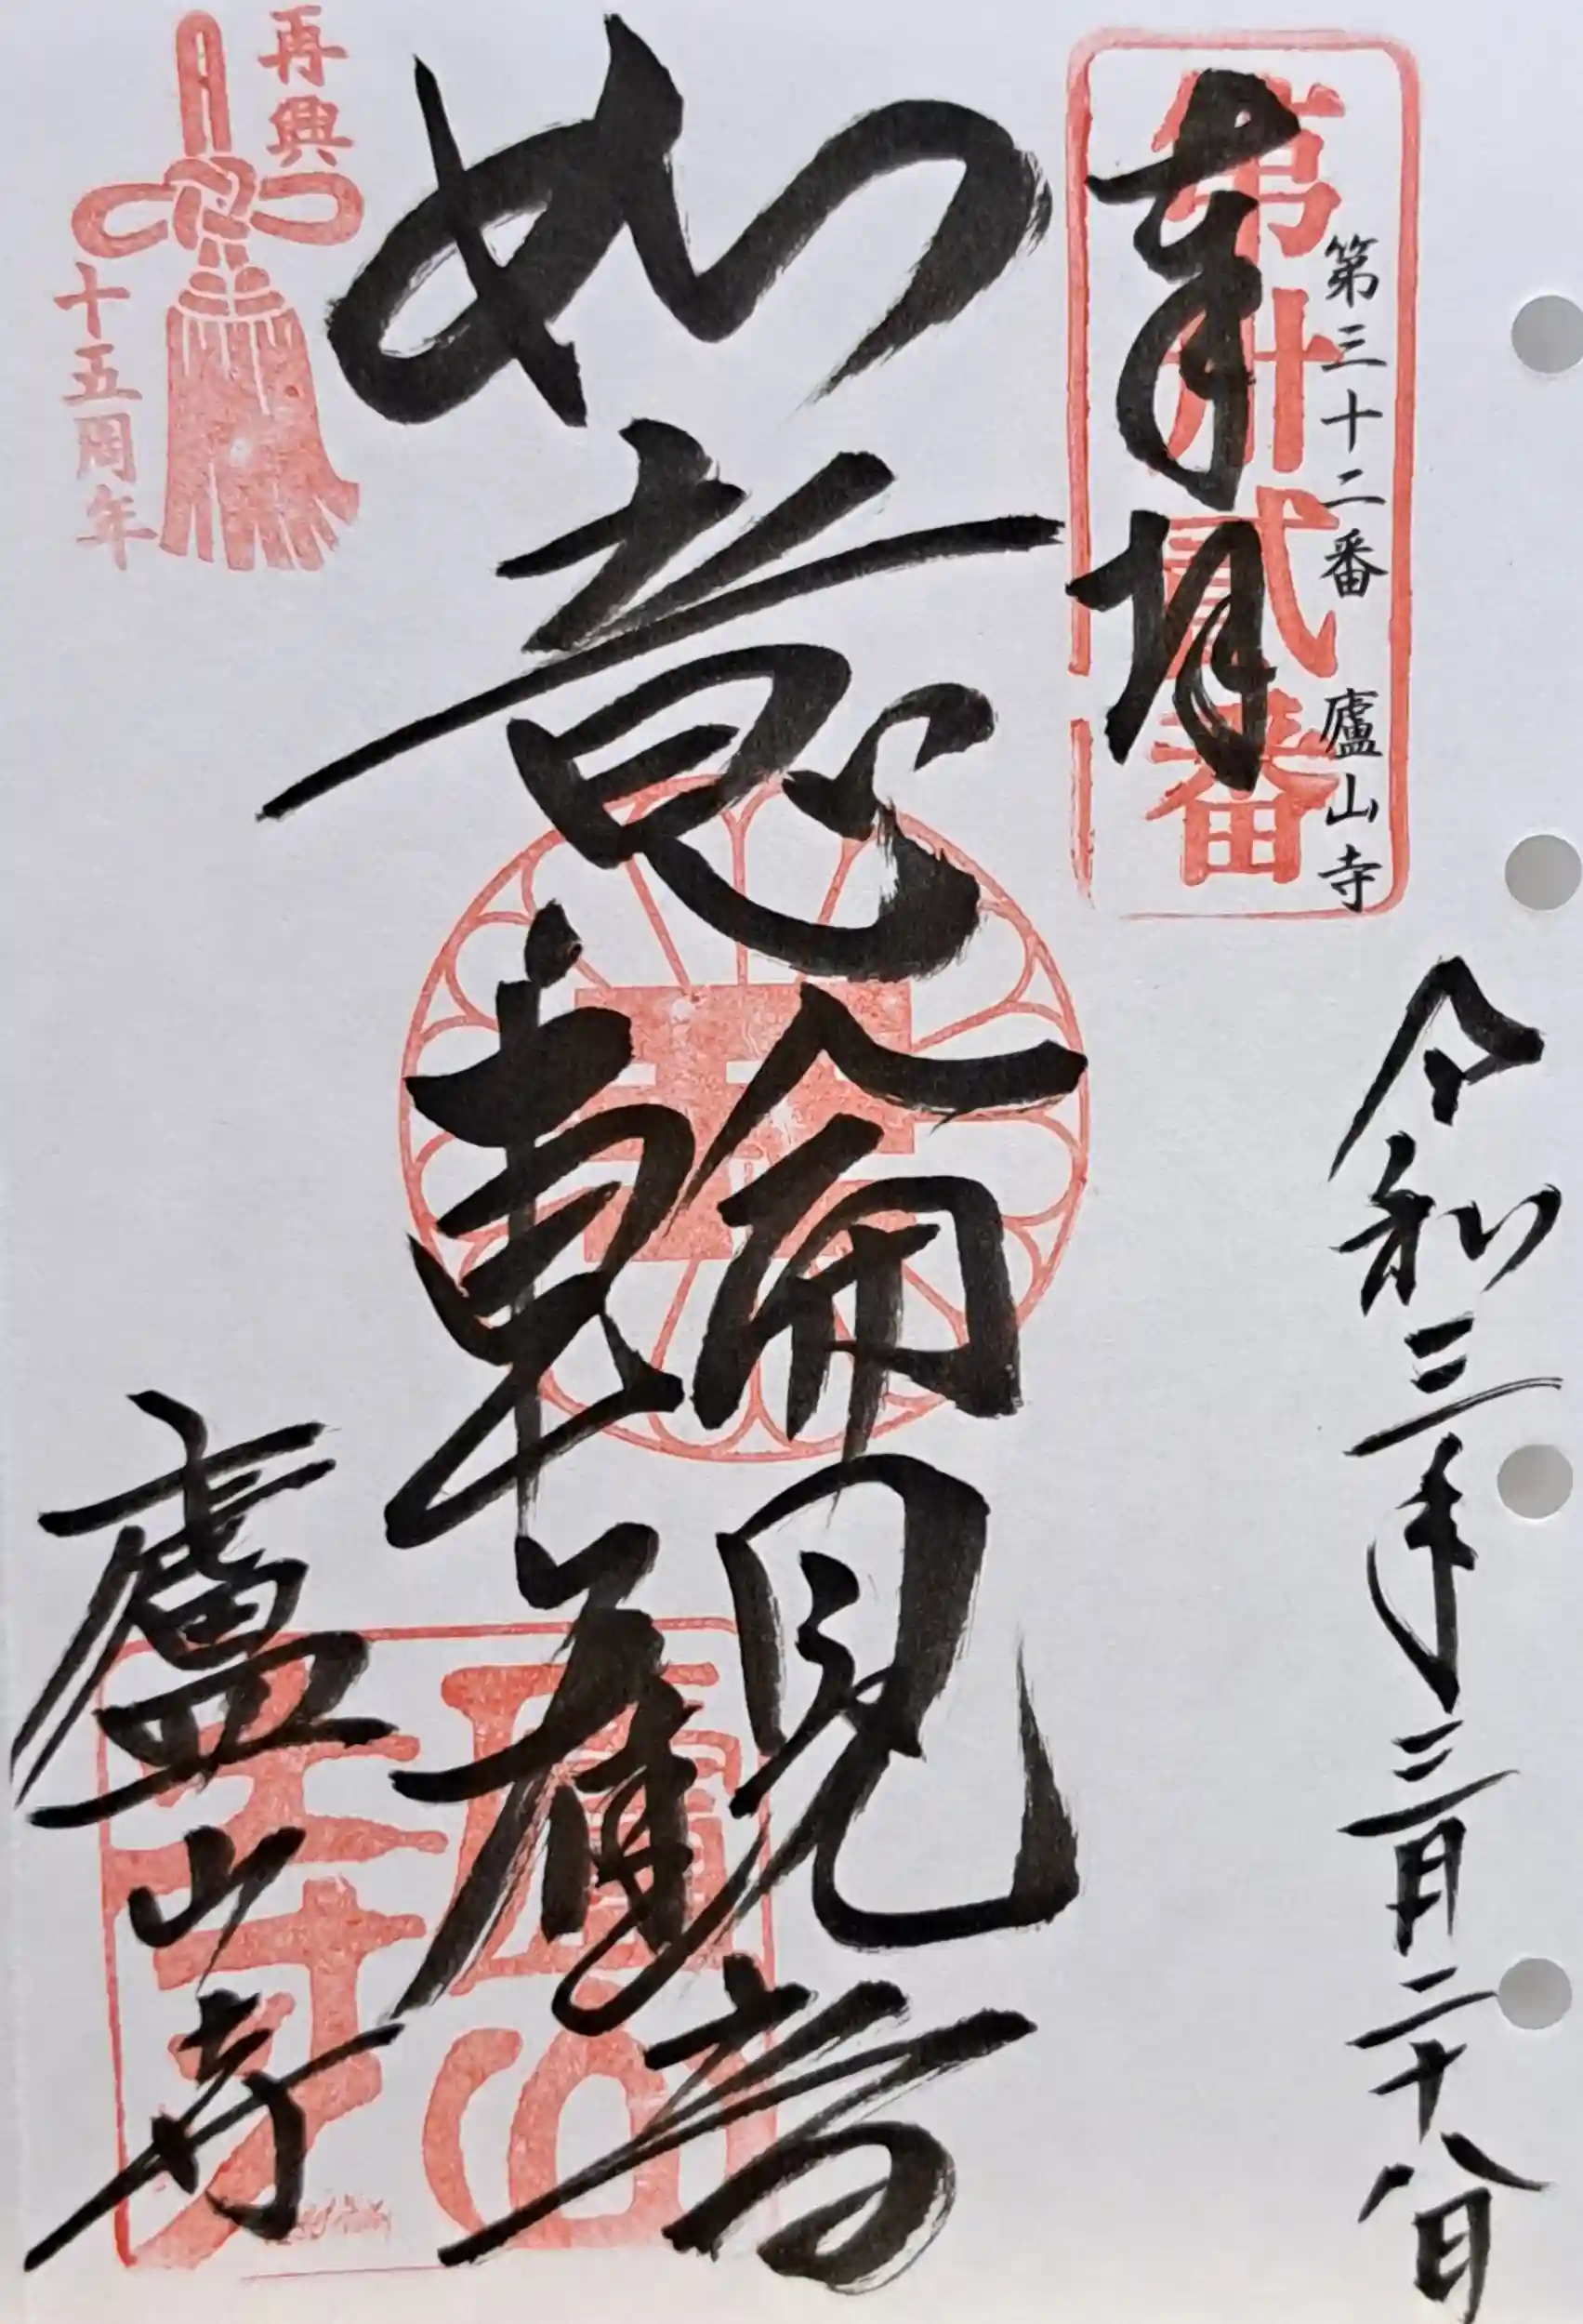 第三十二番 廬山寺
第卅貳番
奉拝
令和三年三月二十八日
如意輪観音
廬山寺
再興
十五周年
廬山
天寺